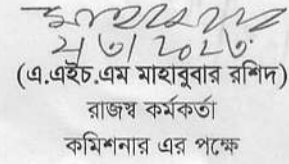 (এ.এইচ.এম মাহাবুবার রশিদ)
রাজস্ব কর্মকর্তা
কমিশনার এর পক্ষে